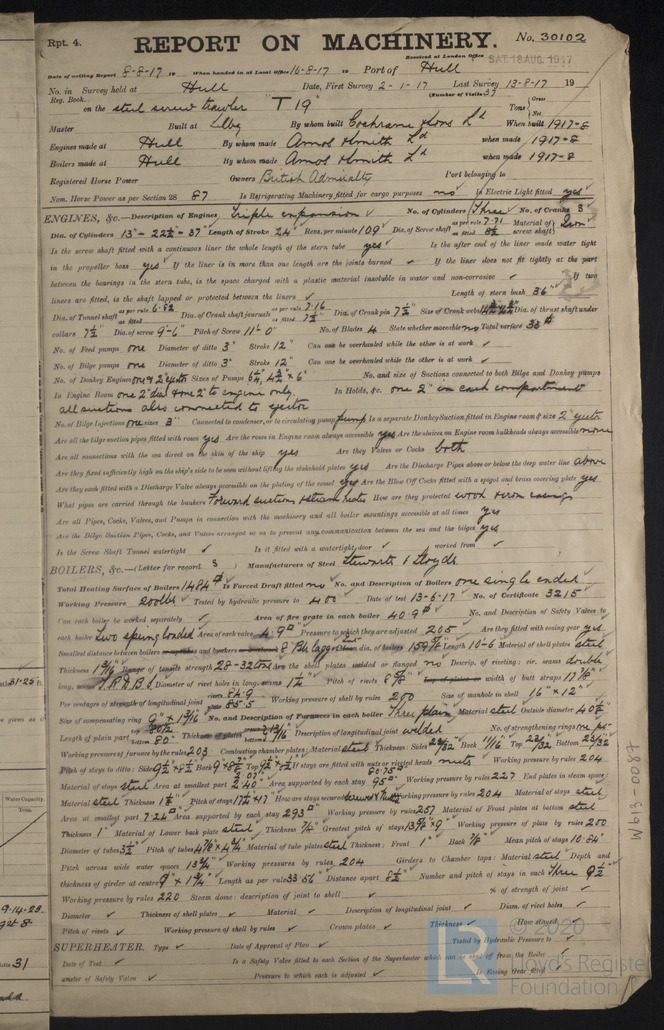 Rpt. 4.
REPORT ON MACHINERY.
No. 30102
Received at London Office SAT. 18 AUG. 1917
Date of writing Report 8-8-17 19 When handed in at Local Office 16-8-17 19 Port of Hull
No. in Survey held at Hull Date, First Survey 2-1-17 Last Survey 13-8-17 19
Reg. Book. (Number of Visits 37
on the steel screw trawler "T 19" Tons { Gross Net
Master Built at Selby By whom built Cochrane & Sons Ld When built 1917-8
Engines made at Hull By whom made Amos & Smith Ld when made 1917-8
Boilers made at Hull By whom made Amos & Smith Ld when made 1917-8
Registered Horse Power Owners British Admiralty Port belonging to
Nom. Horse Power as per Section 28 87 Is Refrigerating Machinery fitted for cargo purposes no Is Electric Light fitted yes
ENGINES, &c.—Description of Engines Triple expansion No. of Cylinders Three No. of Cranks 3
Dia. of Cylinders 13"- 22½- 37" Length of Stroke 24" Revs. per minute 109 Dia. of Screw shaft as per rule 7.71 as fitted 8½ Material of screw shaft Iron
Is the screw shaft fitted with a continuous liner the whole length of the stern tube yes Is the after end of the liner made water tight
in the propeller boss yes If the liner is in more than one length are the joints burned ✓ If the liner does not fit tightly at the part
between the bearings in the stern tube, is the space charged with a plastic material insoluble in water and non-corrosive ✓ If two
liners are fitted, is the shaft lapped or protected between the liners ✓ Length of stern bush 36"
Dia. of Tunnel shaft as per rule 6.82 as fitted Dia. of Crank shaft journals as per rule 7.16 as fitted 7½ Dia. of Crank pin 7½" Size of Crank webs Dia. of thrust shaft under
collars 7½" Dia. of screw 9'-6" Pitch of Screw 11'-0" No. of Blades 4 State whether moveable no Total surface 33
No. of Feed pumps one Diameter of ditto 3" Stroke 12" Can one be overhauled while the other is at work ✓
No. of Bilge pumps one Diameter of ditto 3" Stroke 12" Can one be overhauled while the other is at work ✓
No. of Donkey Engines one & 2" ejector Sizes of Pumps No. and size of Suctions connected to both Bilge and Donkey pumps
In Engine Room one 2" dia & one 2" to engine only In Holds, &c. one 2" in each compartment
all suctions also connected to ejector
No. of Bilge Injections one sizes 3" Connected to condenser, or to circulating pump pump Is a separate Donkey Suction fitted in Engine room & size 2" ejector
Are all the bilge suction pipes fitted with roses yes Are the roses in Engine room always accessible yes Are the sluices on Engine room bulkheads always accessible none
Are all connections with the sea direct on the skin of the ship yes Are they Valves or Cocks both
Are they fixed sufficiently high on the ship's side to be seen without lifting the stokehold plates yes Are the Discharge Pipes above or below the deep water line above
Are they each fitted with a Discharge Valve always accessible on the plating of the vessel yes Are the Blow Off Cocks fitted with a spigot and brass covering plate yes
What pipes are carried through the bunkers Forward suctions How are they protected wood & iron casings
Are all Pipes, Cocks, Valves, and Pumps in connection with the machinery and all boiler mountings accessible at all times yes
Are the Bilge Suction Pipes, Cocks, and Valves arranged so as to prevent any communication between the sea and the bilges yes
Is the Screw Shaft Tunnel watertight ✓ Is it fitted with a watertight door ✓ worked from ✓
BOILERS, &c.—(Letter for record S ) Manufacturers of Steel Stewarts & Lloyds
Total Heating Surface of Boilers 1484 Is Forced Draft fitted no No. and Description of Boilers one single ended
Working Pressure 200 lbs Tested by hydraulic pressure to 400 Date of test 13-6-17 No. of Certificate 3215
Can each boiler be worked separately ✓ Area of fire grate in each boiler 40.9 No. and Description of Safety Valves to
each boiler Two spring loaded Area of each valve 4.9 Pressure to which they are adjusted 205 Are they fitted with easing gear yes
Smallest distance between boilers Mean dia. of boilers Length 10-6 Material of shell plates steel
Thickness Range of tensile strength 28-32 tons Are the shell plates welded or flanged no Descrip. of riveting: cir. seams double
long. seams T.R.D.B.S. Diameter of rivet holes in long. seams 1¼" Pitch of rivets Lap of plates or width of butt straps
Per centages of strength of longitudinal joint rivets 86.9 plate 85.5 Working pressure of shell by rules 200 Size of manhole in shell 16" × 12"
Size of compensating ring No. and Description of Furnaces in each boiler Three plain Material steel Outside diameter
Length of plain part Thickness of plates Description of longitudinal joint welded No. of strengthening rings
Working pressure of furnace by the rules 203 Combustion chamber plates: Material steel Thickness: Sides Back 11/16 Top Bottom
Pitch of stays to ditto: Sides Back Top If stays are fitted with nuts or riveted heads nuts Working pressure by rules 204
Material of stays steel Area at smallest part Area supported by each stay Working pressure by rules 227 End plates in steam space:
Material steel Thickness Pitch of stays How are stays secured Working pressure by rules 204 Material of stays steel
Area at smallest part 7.24 Area supported by each stay 293 Working pressure by rules 257 Material of Front plates at bottom steel
Thickness 1" Material of Lower back plate steel Thickness Greatest pitch of stays Working pressure of plate by rules 200
Diameter of tubes 3½" Pitch of tubes Material of tube plates steel Thickness: Front 1" Back Mean pitch of stays
Pitch across wide water spaces Working pressures by rules 204 Girders to Chamber tops: Material steel Depth and
thickness of girder at centre Length as per rule Distance apart Number and pitch of stays in each Three 9½
Working pressure by rules 220 Steam dome: description of joint to shell ✓ % of strength of joint ✓
Diameter ✓ Thickness of shell plates ✓ Material ✓ Description of longitudinal joint ✓ Diam. of rivet holes ✓
Pitch of rivets ✓ Working pressure of shell by rules ✓ Crown plates ✓ Thickness ✓ How stayed ✓
SUPERHEATER. Type ✓ Date of Approval of Plan ✓ Tested by Hydraulic Pressure to ✓
Date of Test ✓ Is a Safety Valve fitted to each Section of the Superheater which can be shut off from the Boiler ✓
Diameter of Safety Valve ✓ Pressure to which each is adjusted ✓ Is Easing Gear fitted ✓
W613-0087
© 2020
LR
Lloyd's Register
Foundation
Water Capacity